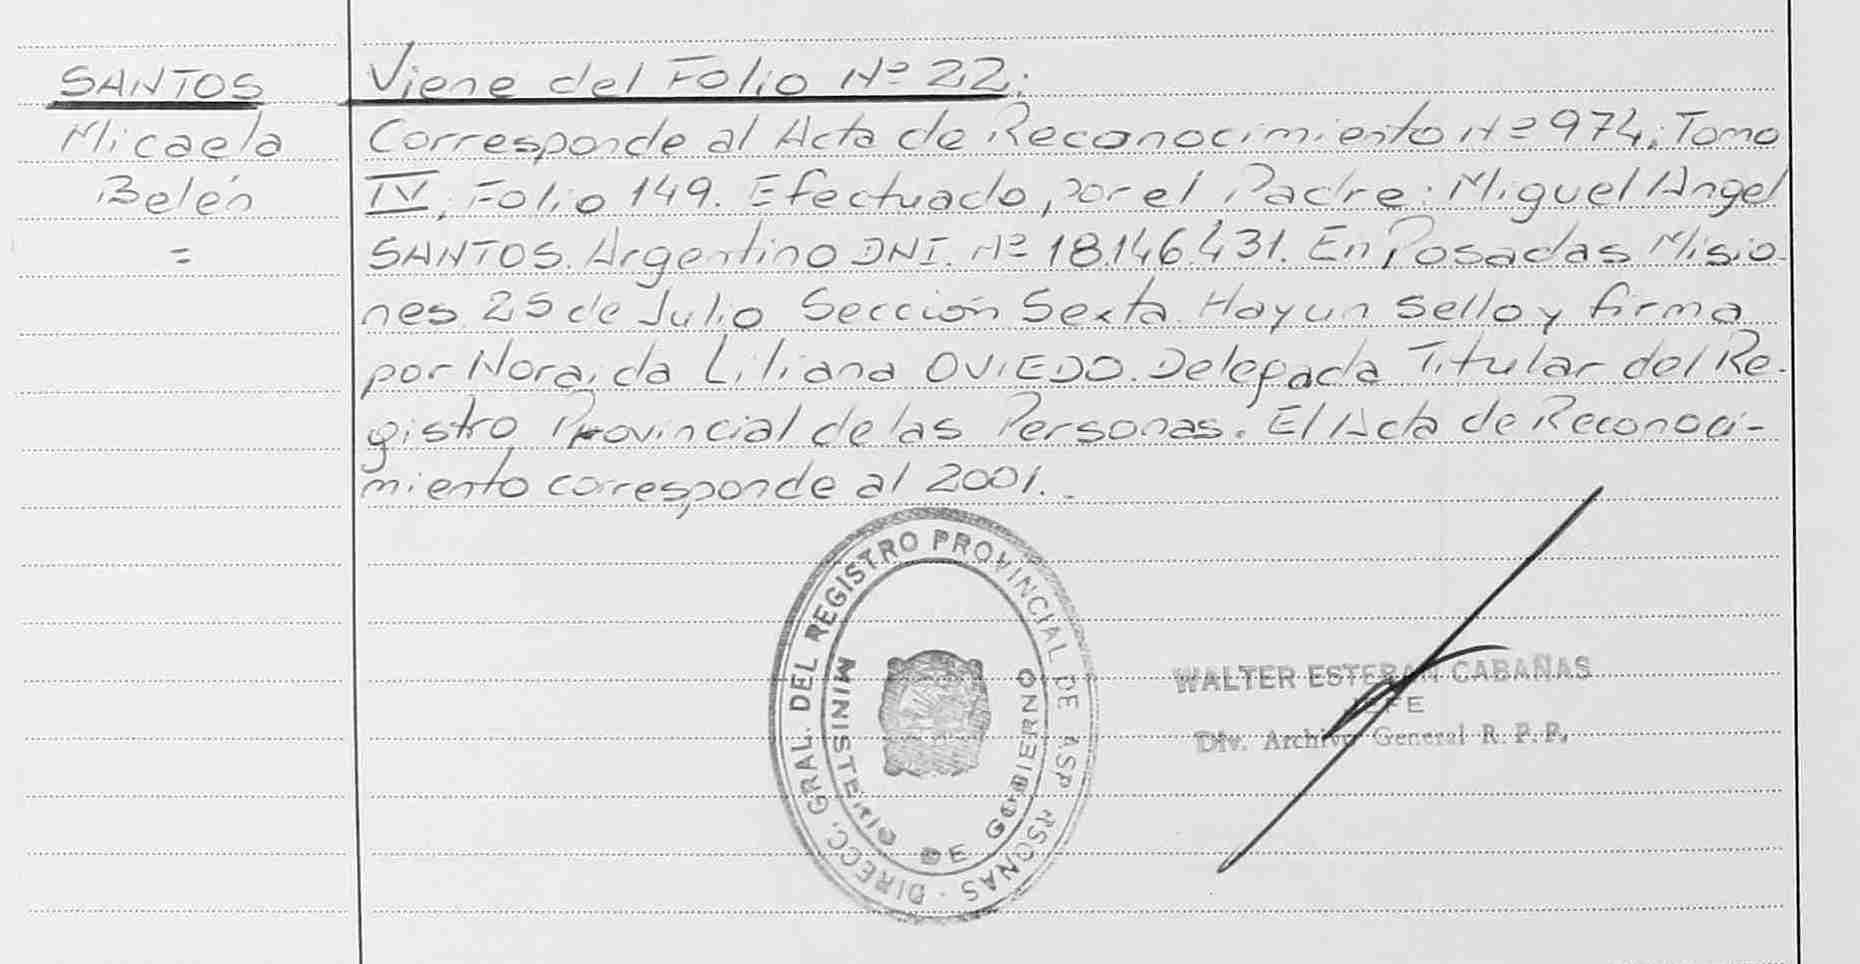 SANTOS
Micaela
Belén
=
Viene del Folio Nº 22.
Corresponde al Acta de Reconocimiento Nº 974, Tomo
IV, Folio 149. Efectuado, por el Padre: Miguel Angel
SANTOS. Argentino DNI. Nº 18.146.431. En Posadas Misio-
nes 25 de Julio Sección Sexta. Hay un sello y firma
por Noraida Liliana OVIEDO. Delegada Titular del Re-
gistro Provincial de las Personas. El Acta de Reconoci-
miento corresponde al 2001.
DIRECC. GRAL. DEL REGISTRO PROVINCIAL DE PERSONAS
MINISTERIO DE GOBIERNO
WALTER ESTEBAN CABAÑAS
JEFE
Div. Archivo General R. P. P.